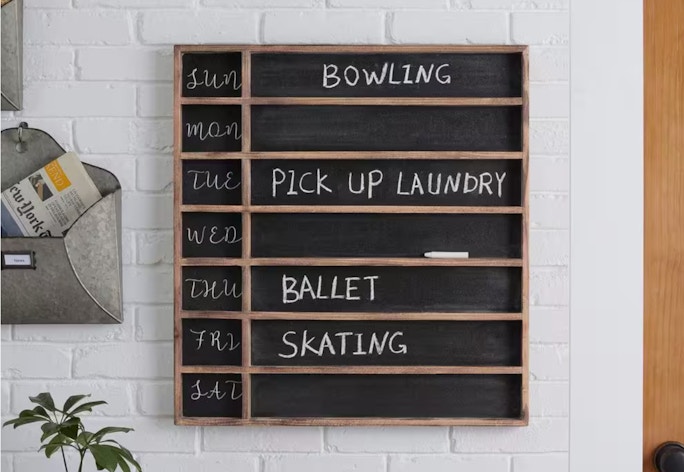 SUN BOWLING
MON
TUE PICK UP LAUNDRY
WED
THU BALLET
FRI SKATING
SAT
New York